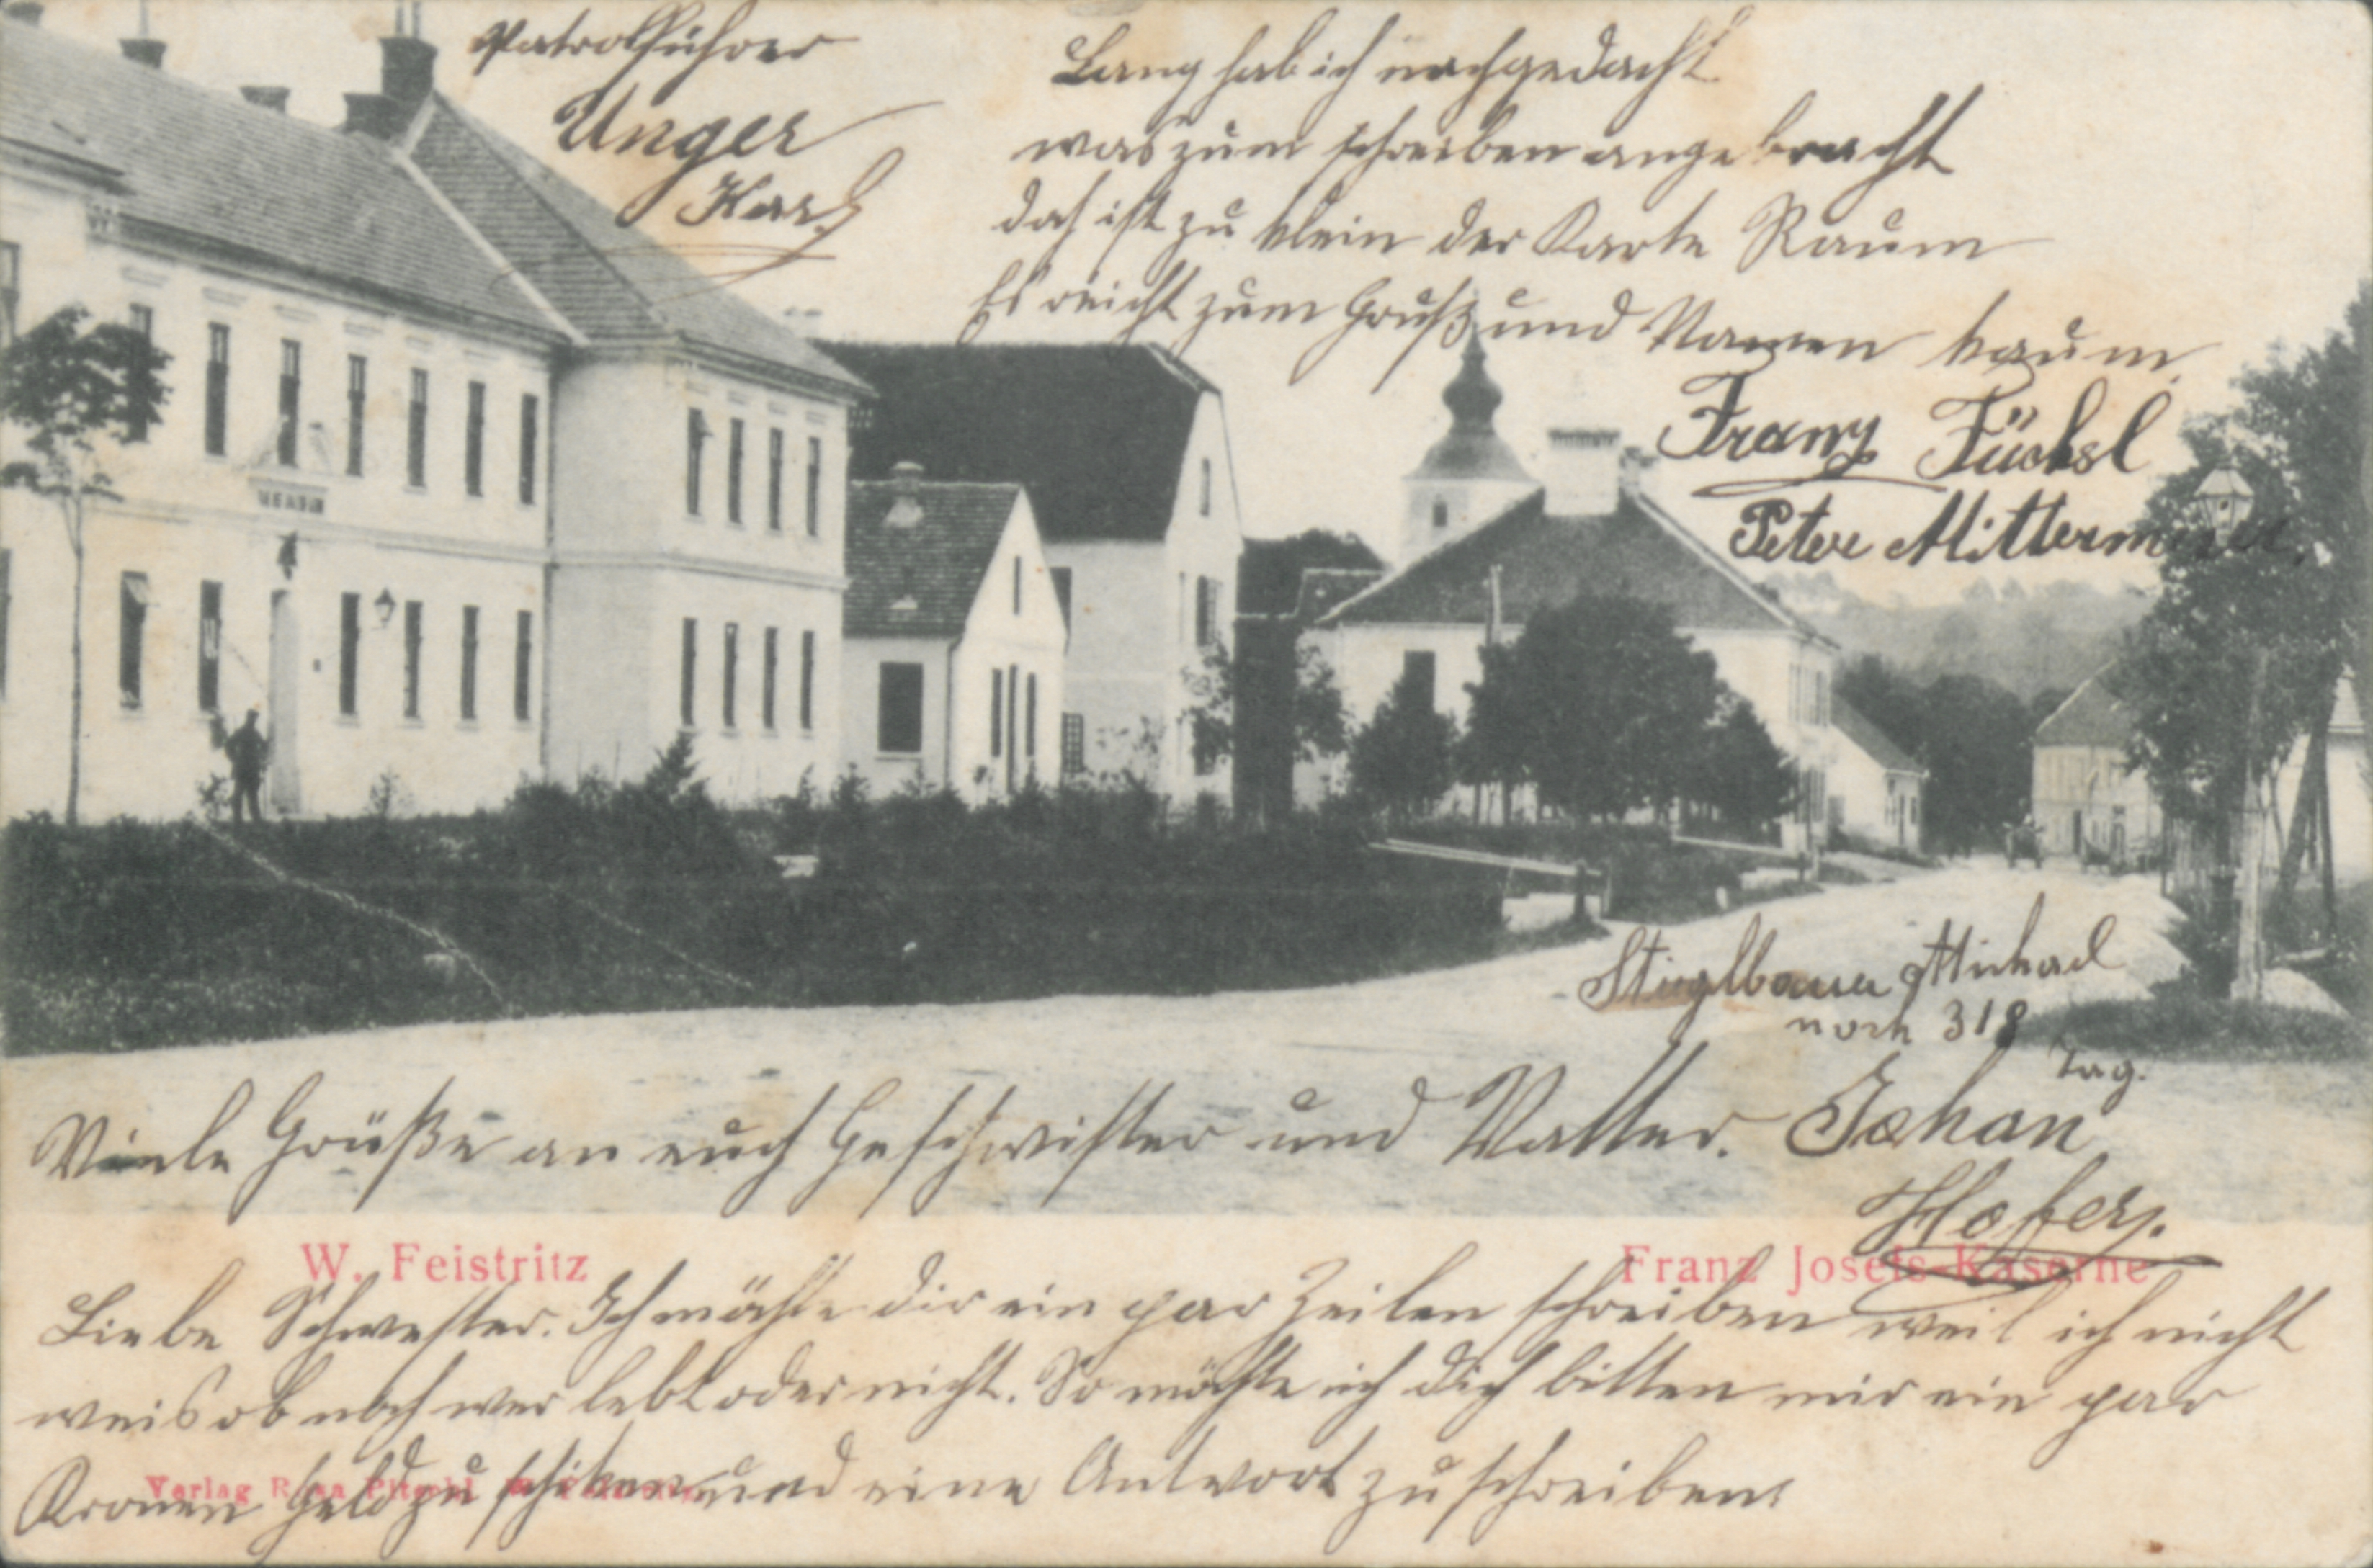 Patrolführer
Unger
Karl
Lang hab ich nachgedacht
was zum schreiben angebracht
doch ist zu klein der Karte Raum
Es reicht zum Gruß und Namen kaum
Franz Füchsl
Peter Mittermeier.
Stieglbauer Michael
noch 318
Tag.
Viele Grüße an euch Geschwister und Vatter. Johan
Hofer.
W. Feistritz
Franz Josefs-Kaserne
Liebe Schwester. Ich möchte dir ein par Zeilen schreiben weil ich nicht
weis ob noch wer lebt oder nicht. So möchte ich dich bitten mir ein par
Kronen Geld zu schiken und eine Antwort zu schreiben.
Verlag Rosa